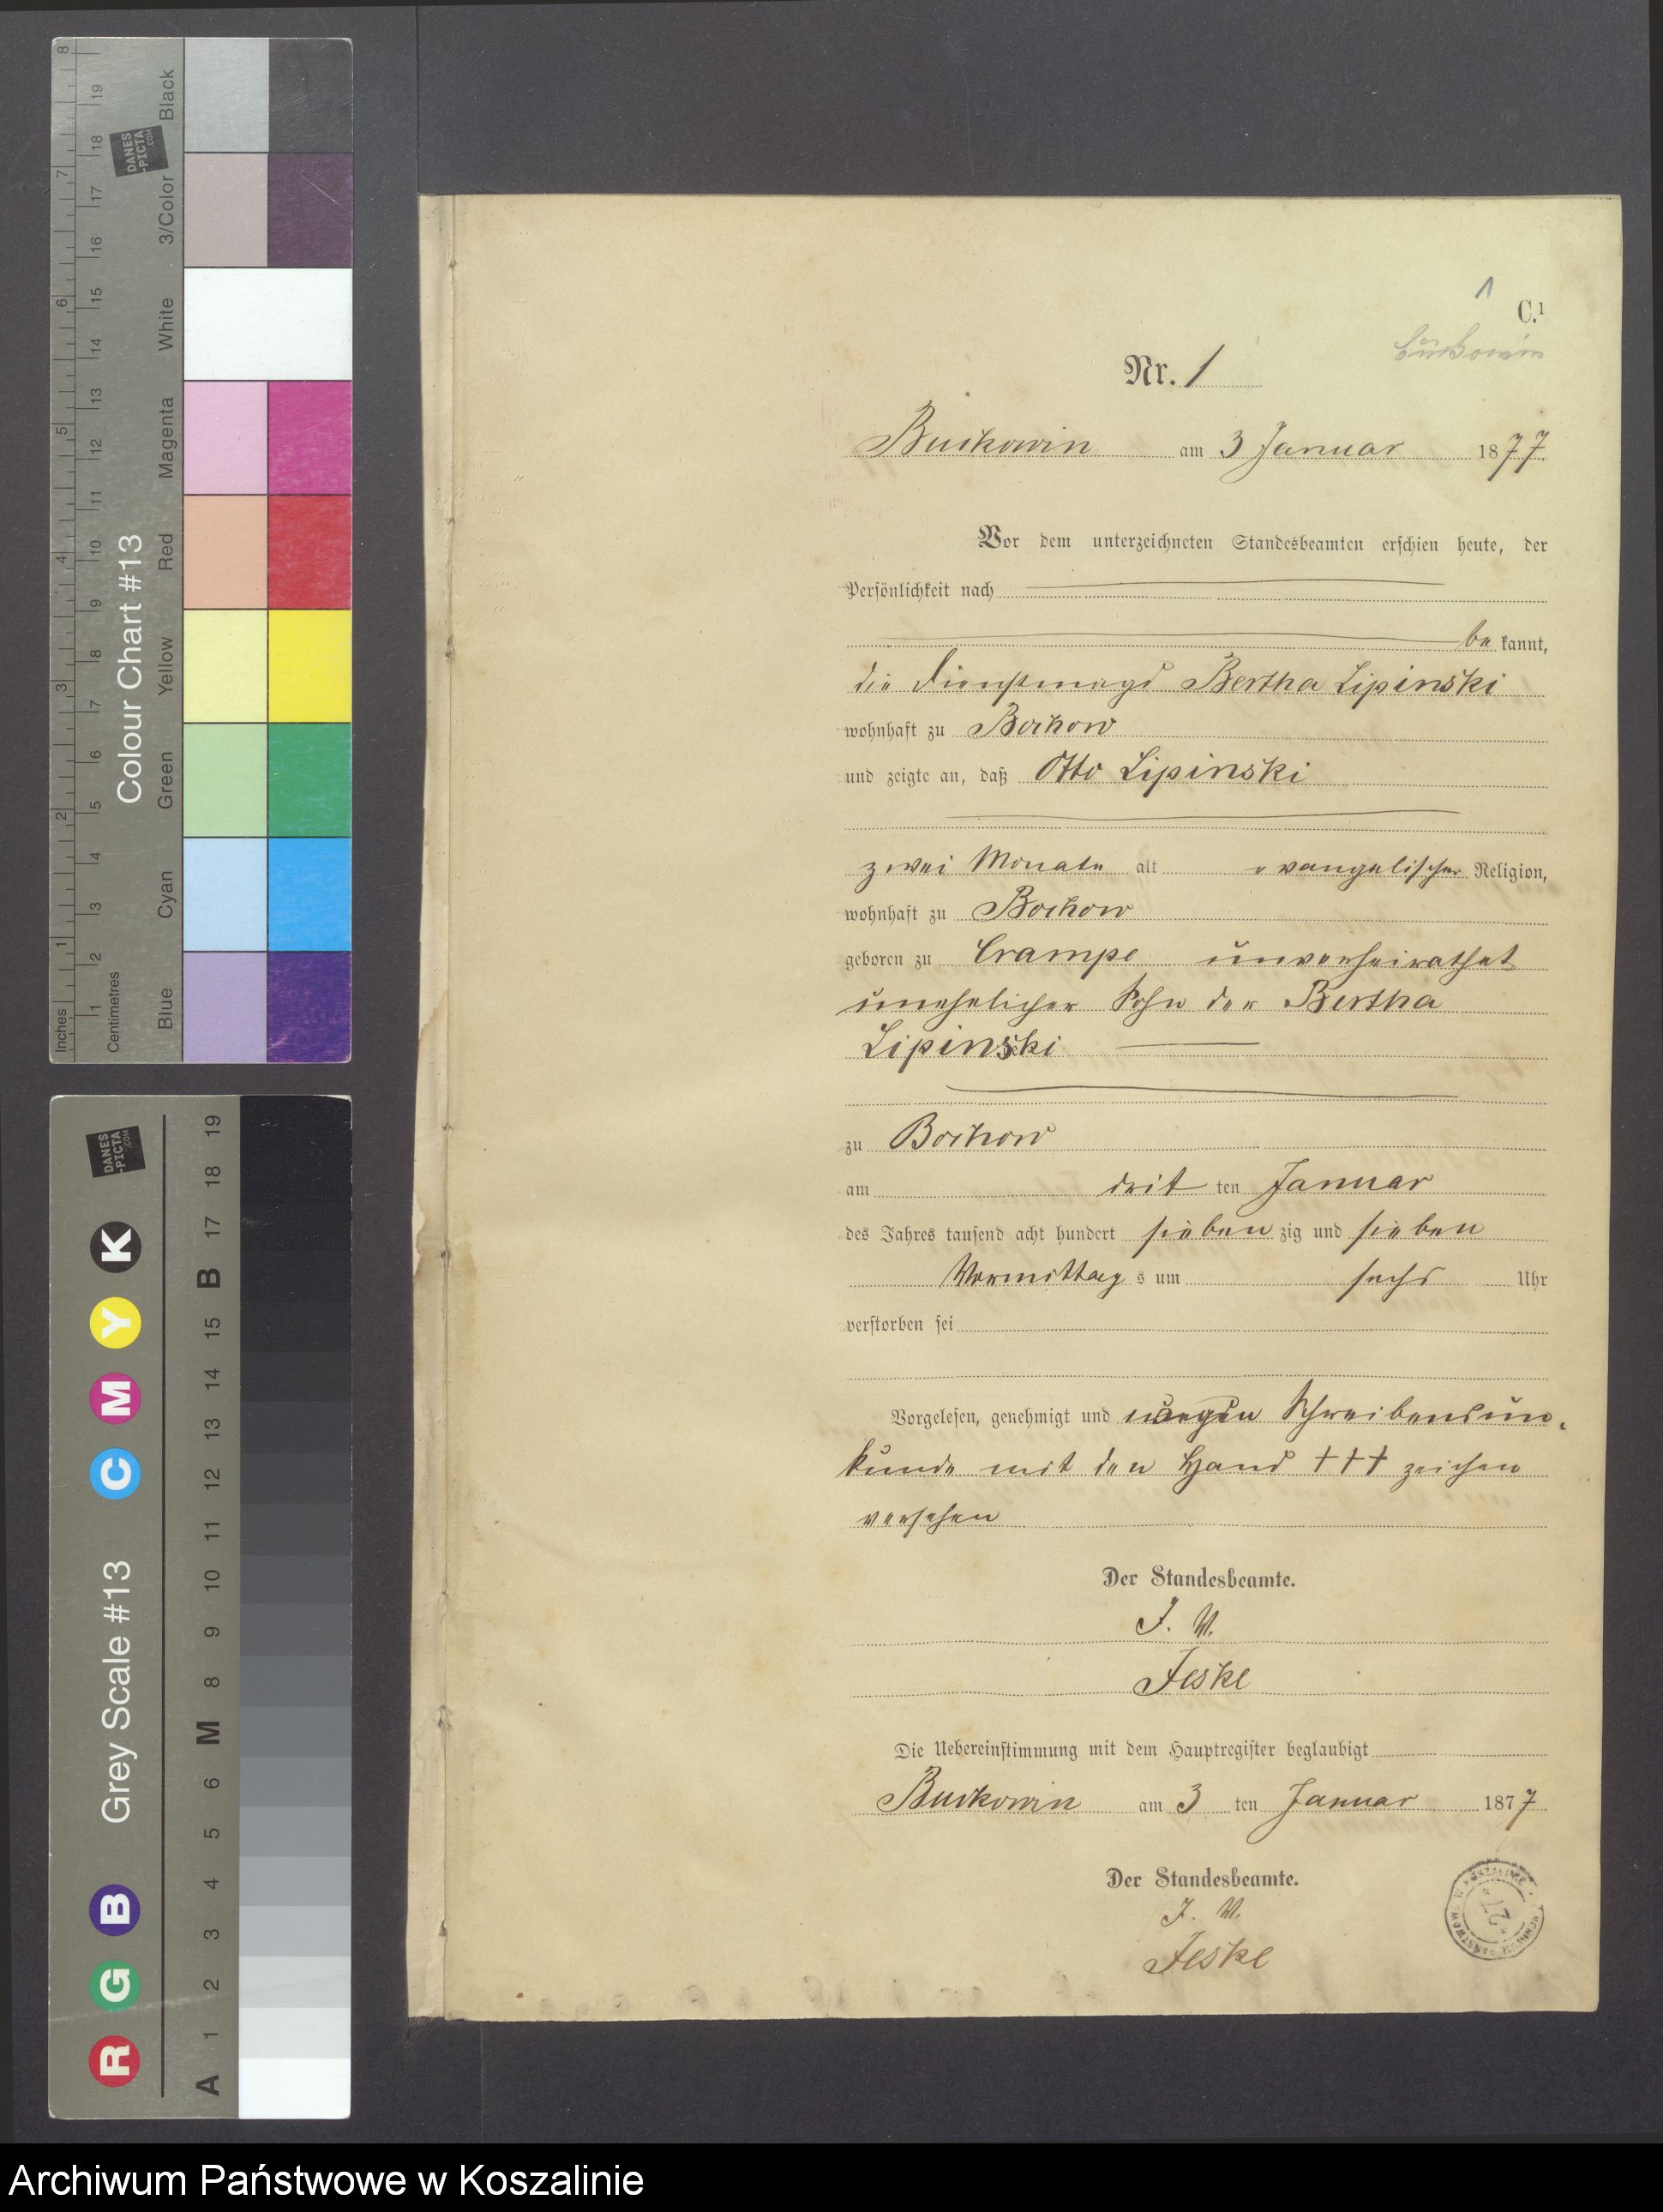 8 7 6 5 4 3 2 1 Inches
19 18 17 16 15 14 13 12 11 10 9 8 7 6 5 4 3 2 1 Centimetres
DANES
-PICTA
.COM
Colour Chart #13
Black
3/Color
White
Magenta
Red
Yellow
Green
Cyan
Blue
DANES
-PICTA
.COM
Grey Scale #13
R G B C M Y K
A 1 2 3 4 5 6 M 8 9 10 11 12 13 14 15 B 17 18 19
1
C.1
Nr. 1
Buckowin am 3 Januar 1877
Vor dem unterzeichneten Standesbeamten erschien heute, der
Persönlichkeit nach
be kannt,
die Dienstmagd Bertha Lipinski
wohnhaft zu Bochow
und zeigte an, daß Otto Lipinski
zwei Monate alt evangelischer Religion,
wohnhaft zu Bochow
geboren zu Crampe unverheirathet
unehelicher Sohn der Bertha
Lipinski
zu Bochow
am drit ten Januar
des Jahres tausend acht hundert sieben zig und sieben
Vormittag s um sechs Uhr
verstorben sei
Vorgelesen, genehmigt und wegen Schreibensun-
kunde mit den Hand +++ zeichen
versehen
Der Standesbeamte.
J. V.
Jeske
Die Uebereinstimmung mit dem Hauptregister beglaubigt
Buckowin am 3 ten Januar 1877
Der Standesbeamte.
J. V.
Jeske
Archiwum Państwowe w Koszalinie